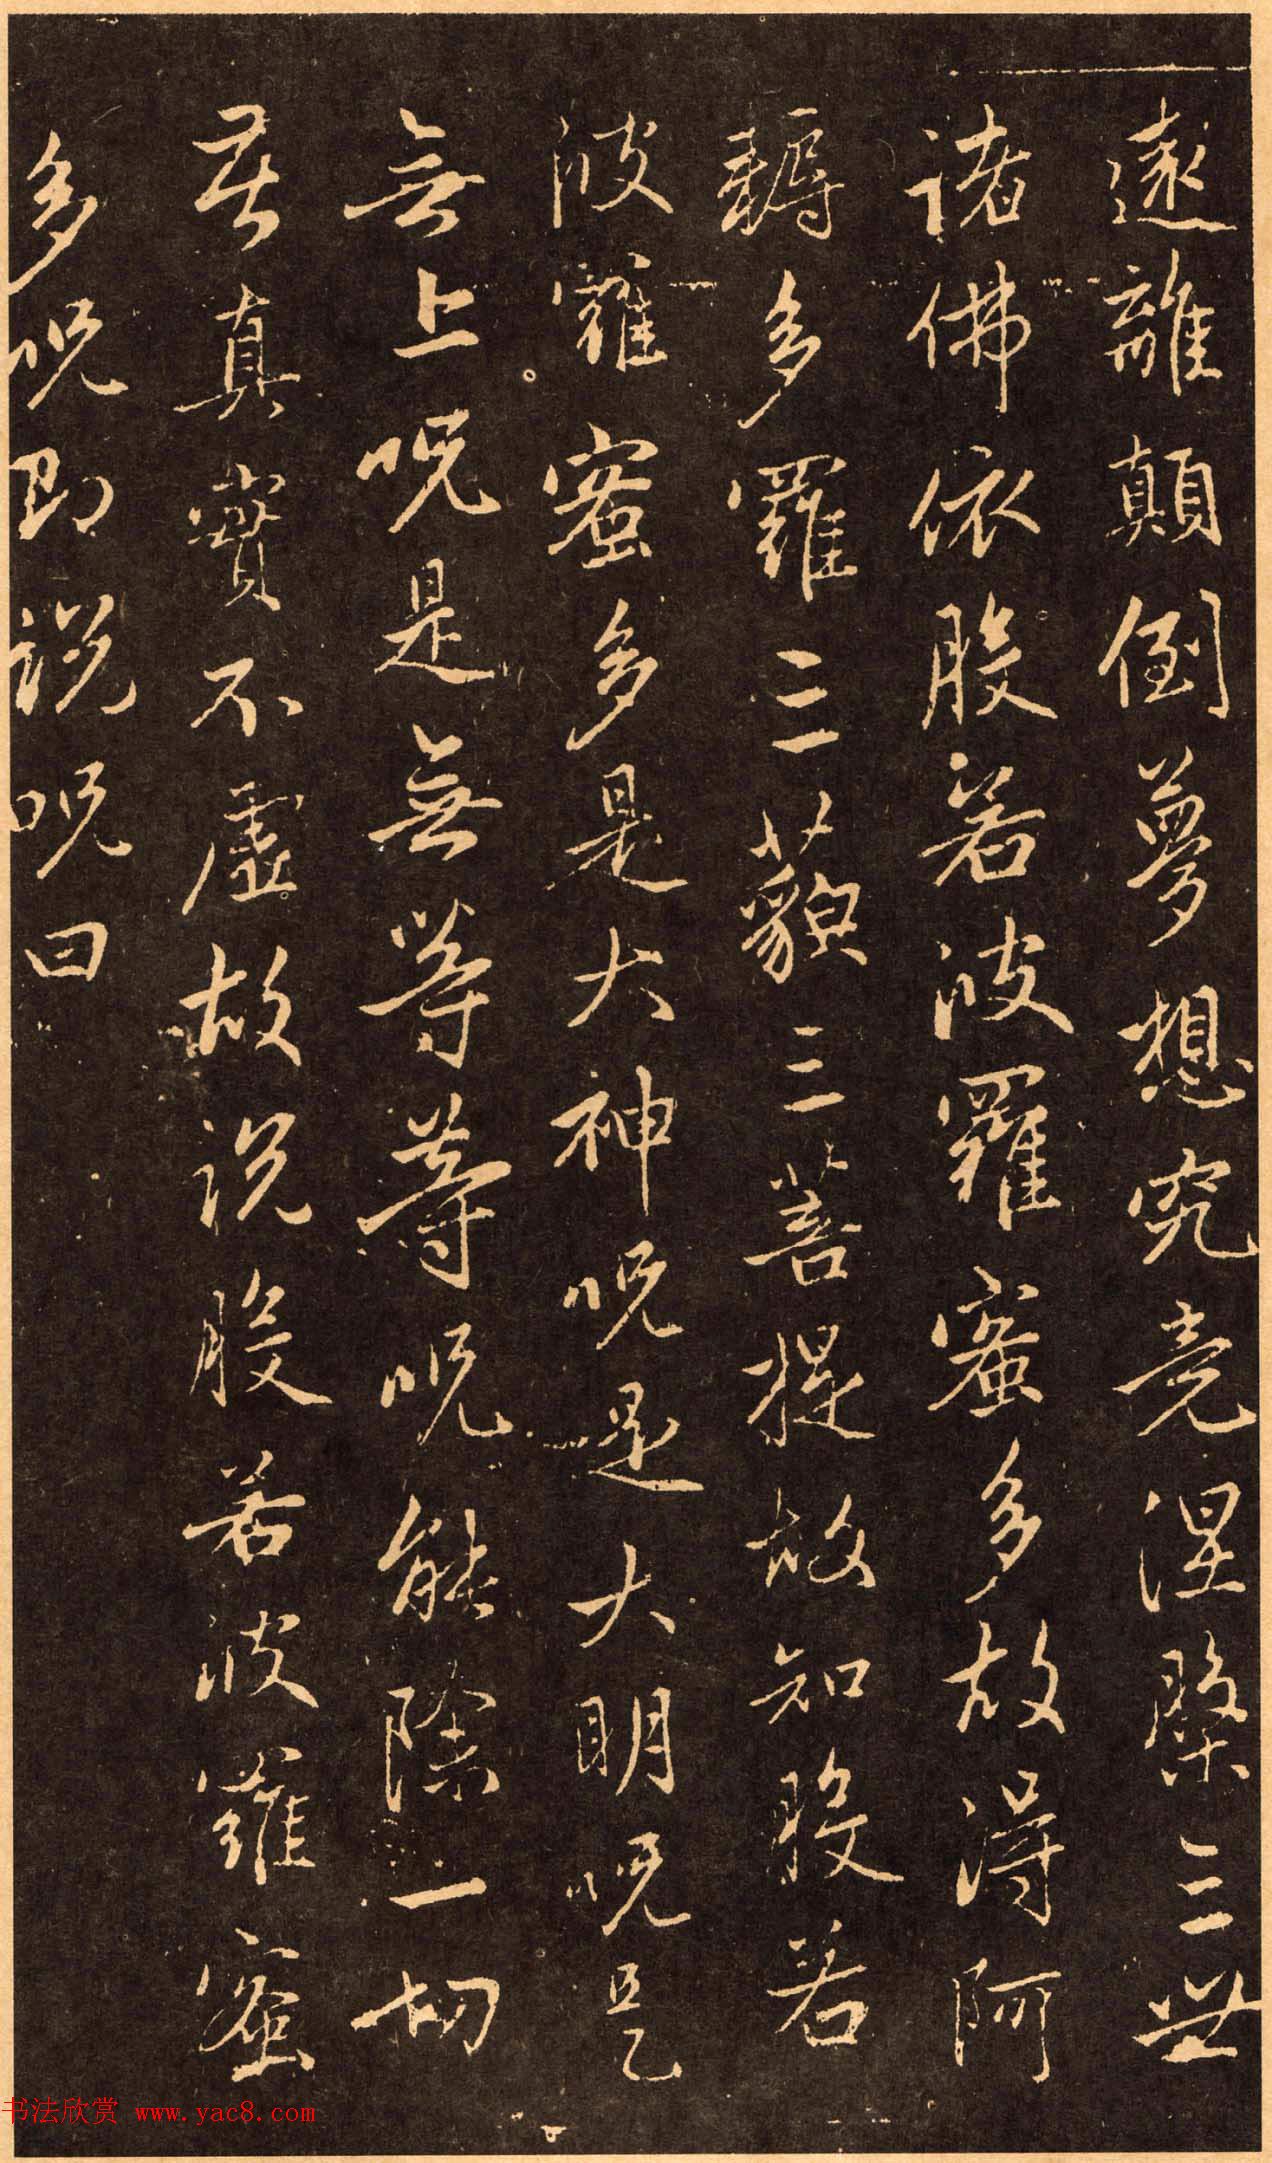 遠離顛倒夢想究竟涅槃三世
諸佛依般若波羅蜜多故得阿
耨多羅三藐三菩提故知般若
波羅蜜多是大神呪是大明呪是
無上呪是無等等呪能除一切
苦真實不虛故説般若波羅蜜
多呪即説呪曰
书法欣赏 www.yac8.com